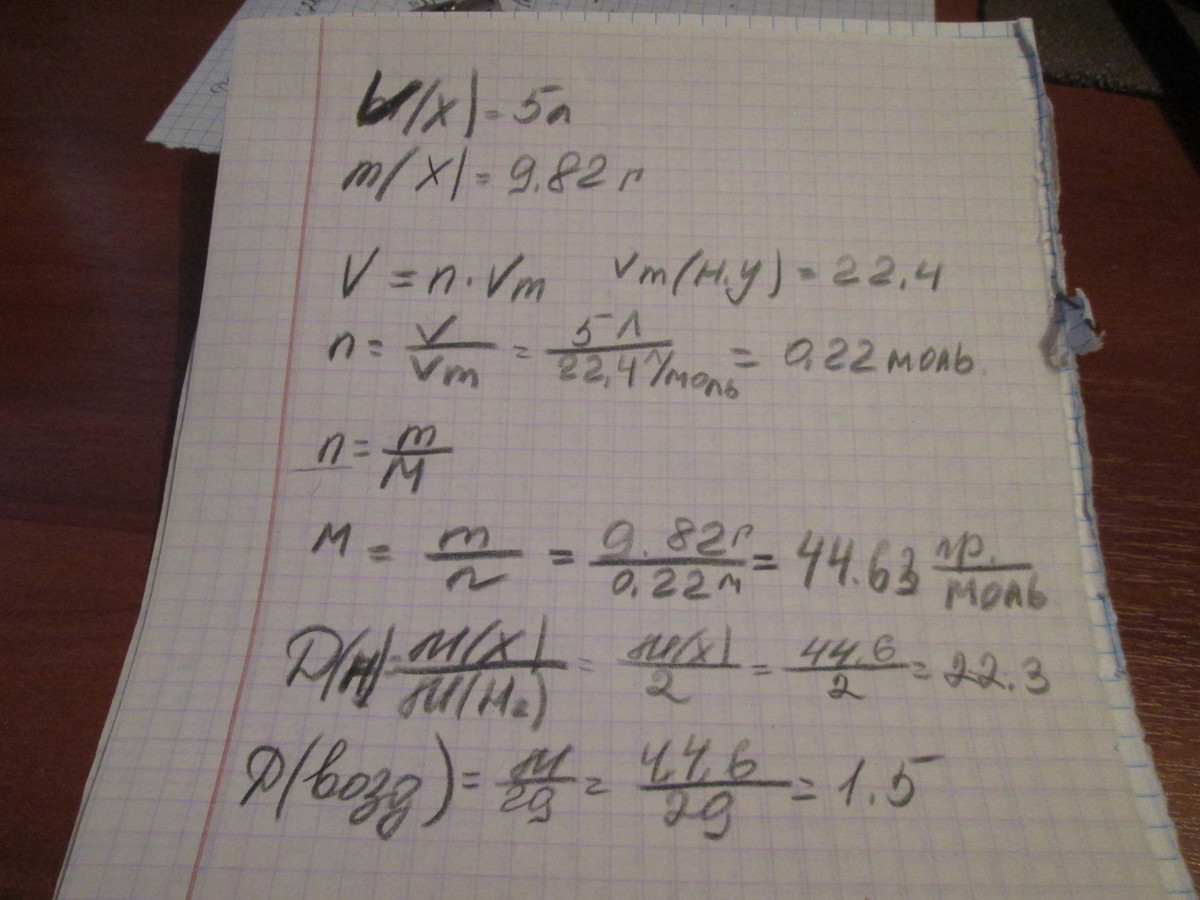 V(X) = 5л
m(X) = 9.82 г
V = n · Vm Vm(н.у) = 22,4
n = V/Vm = 5 л/22,4 л/моль = 0.22 моль
n = m/M
M = m/n = 9.82 г/0.22 м = 44.63 гр./моль
D(H) = M(X)/M(H₂) = M(X)/2 = 44.6/2 = 22.3
D(возд) = M/29 = 44.6/29 = 1.5